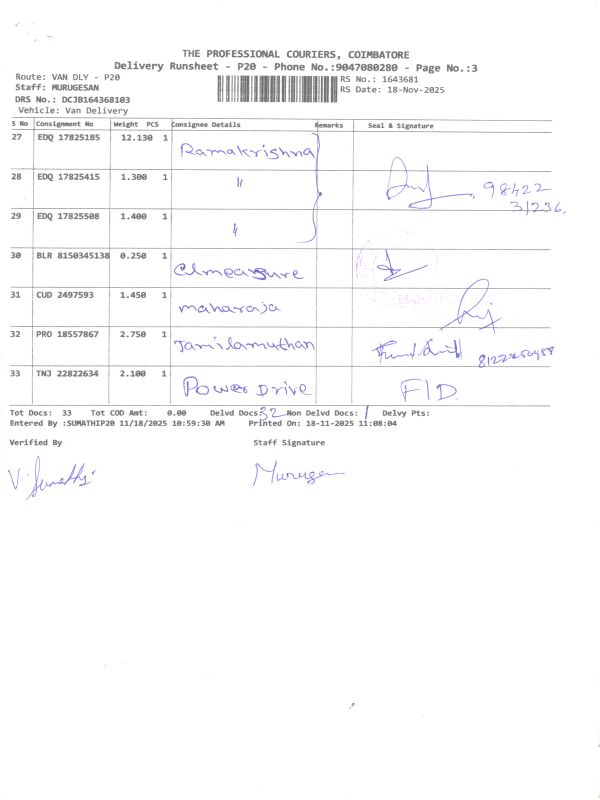 THE PROFESSIONAL COURIERS, COIMBATORE
Delivery Runsheet - P20 - Phone No.:9047080280 - Page No.:3
Route: VAN DLY - P20
RS No.: 1643681
Staff: MURUGESAN
RS Date: 18-Nov-2025
DRS No.: DCJB164368103
Vehicle: Van Delivery
S No Consignment No Weight PCS Consignee Details Remarks Seal & Signature
27 EDQ 17825185 12.130 1 Ramakrishna
28 EDQ 17825415 1.300 1 "
98422
31236.
29 EDQ 17825508 1.400 1 "
30 BLR 8150345138 0.250 1 Elmeasure
31 CUD 2497593 1.450 1 maharaja
32 PRO 18557867 2.750 1 Tamilamuthan
33 TNJ 22822634 2.100 1 Power Drive F/D.
Tot Docs: 33 Tot COD Amt: 0.00 Delvd Docs: 32 Non Delvd Docs: 1 Delvy Pts:
Entered By :SUMATHIP20 11/18/2025 10:59:30 AM Printed On: 18-11-2025 11:08:04
Verified By Staff Signature
V. Sumathi Murugan